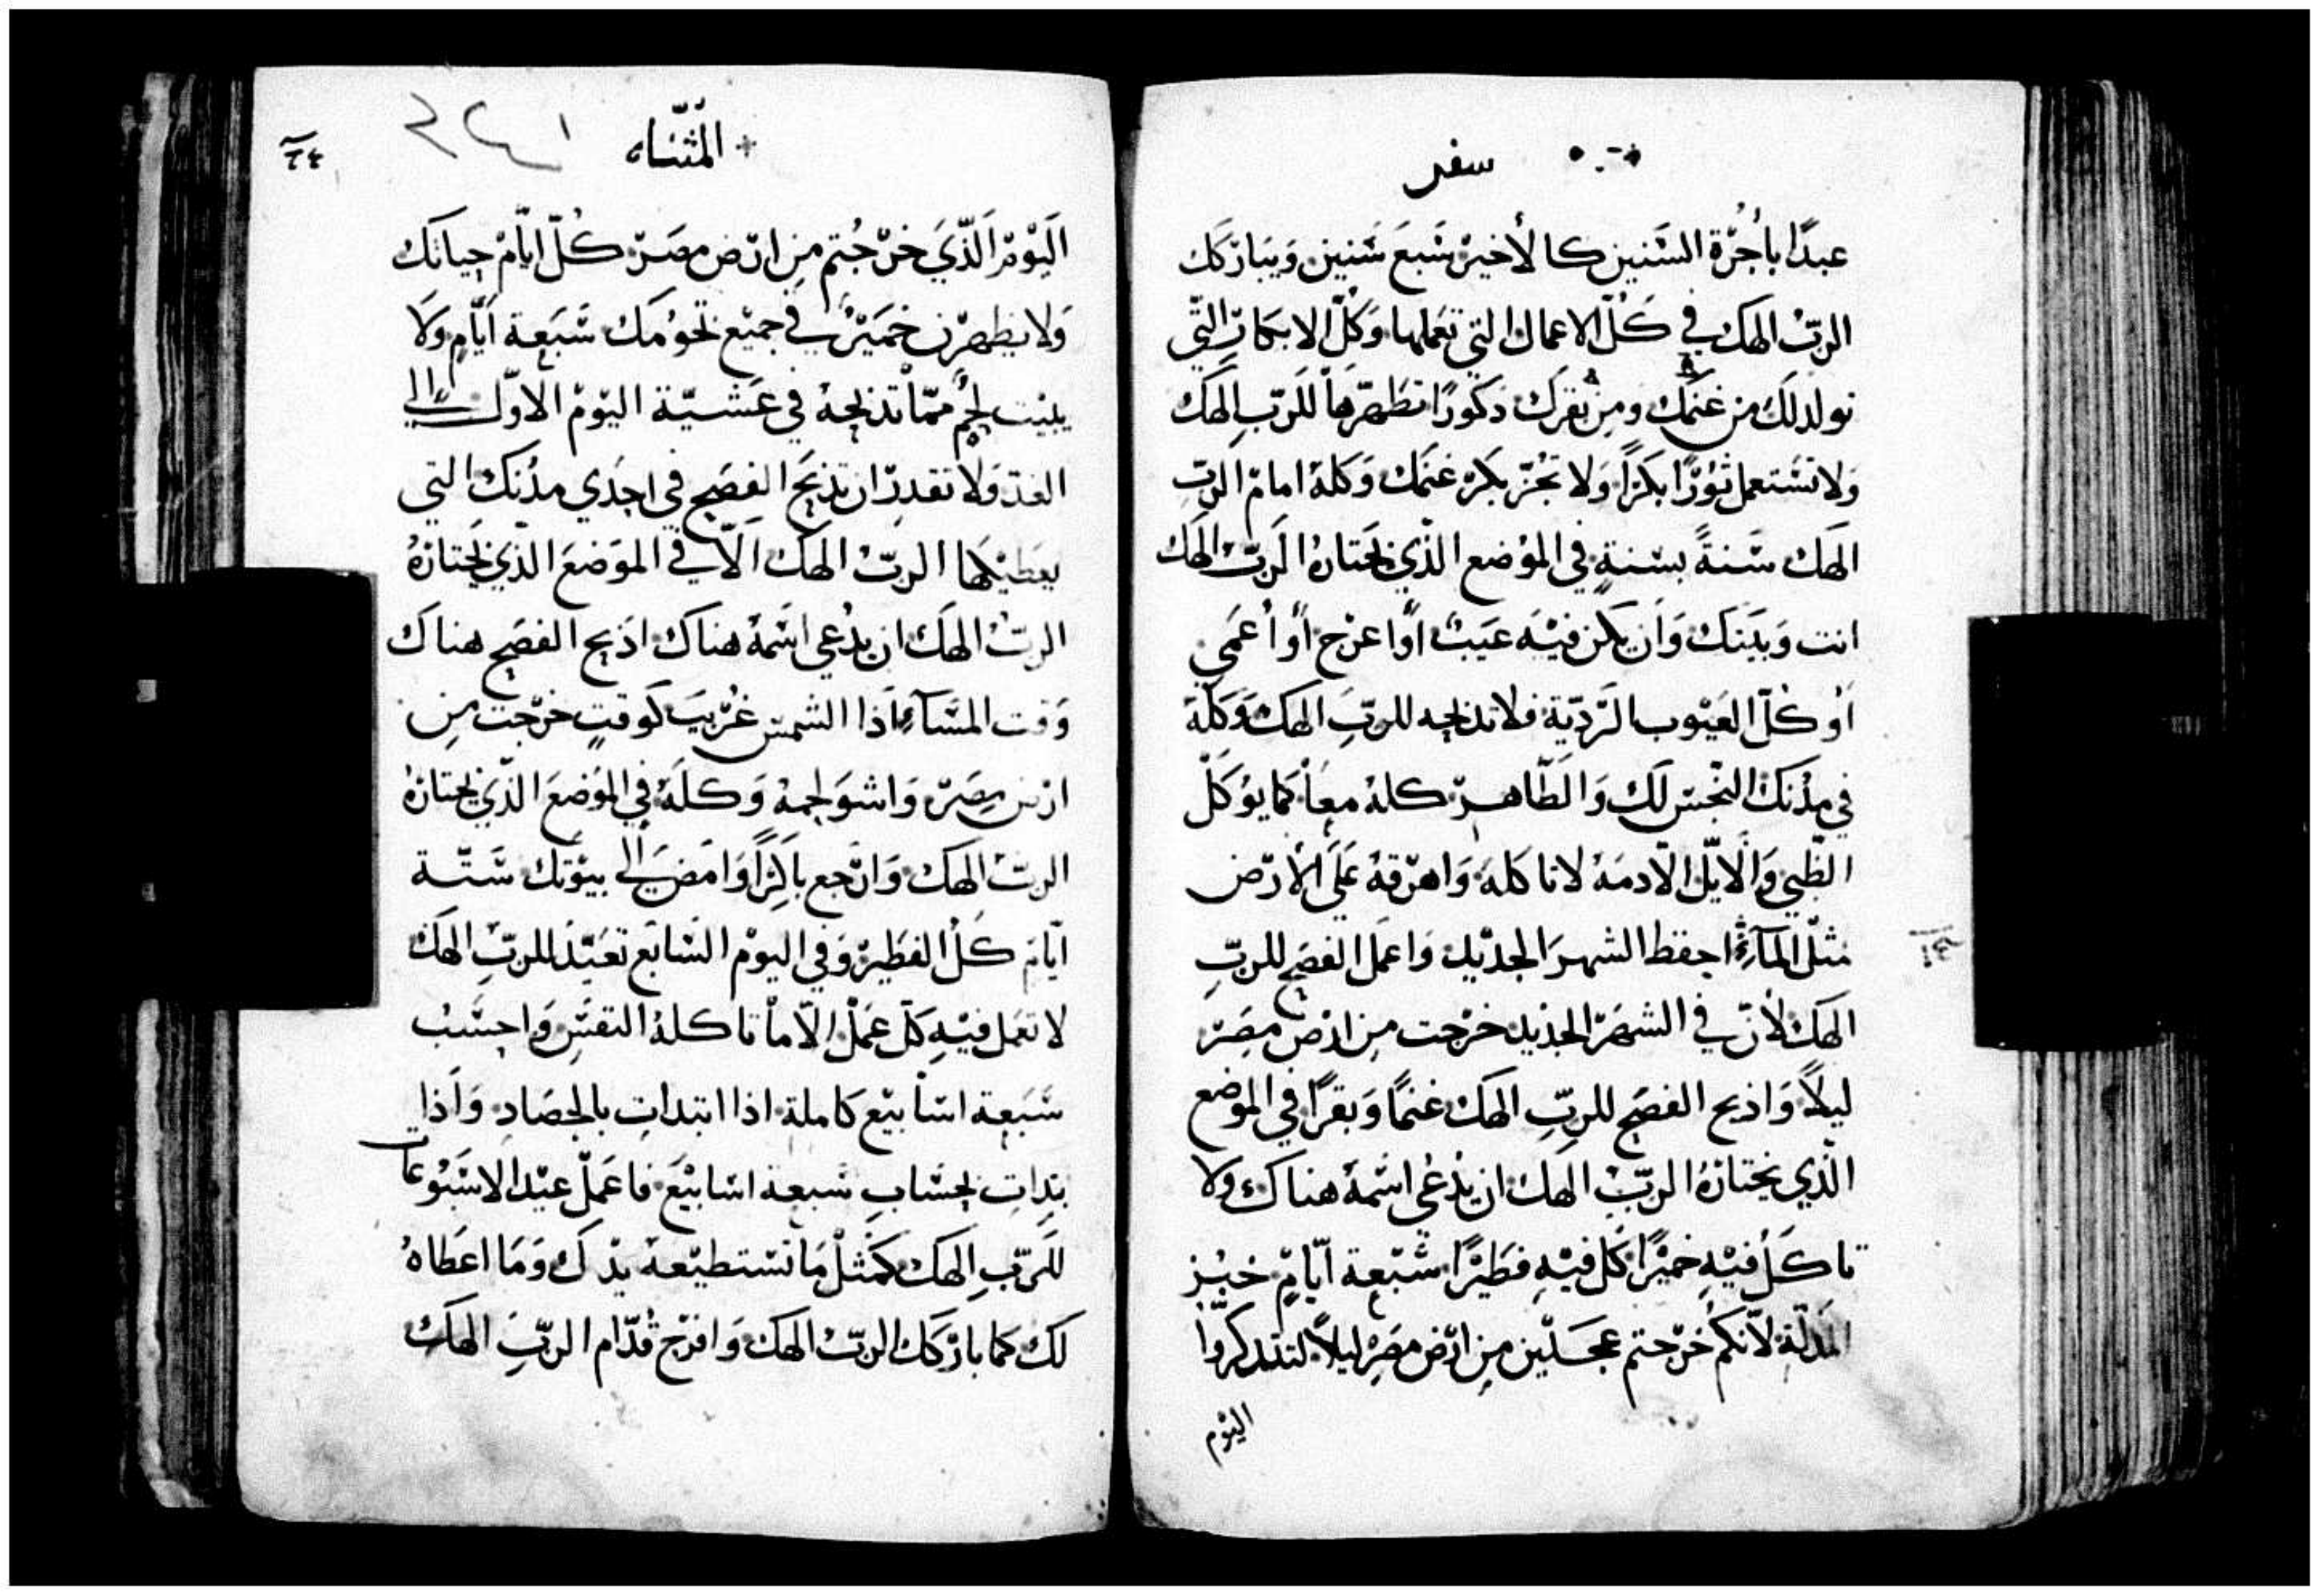 سفر
عبدًا بأُجْرَة السَّنين كالأخير سَبعَ سَنين وَيبَارَكك
الربّ الهك في كُلّ الاعمال التي تعَملها وَكُلّ الابكار الّتي
تولد لَك من غنمَك ومن بقرك ذكورًا تطَهّرها للرّبِ الهَك
وَلا تسْتعمل ثوْرًا بكرًا وَلا تجُزّ بكرَ غنمك وَكلهُ امام الربّ
الهَك سَنةً بسْنةٍ في الموْضع الذي يختارهُ الربّ الهك
انت وَبيْتك وَان يكن فيْهَ عيَبٌ اوْ اعرْج أوْ أعمَي
أو كُلّ العيْوب الرّديّة فلا تذبحه للربّ الهك وَكلهَ
في مدُنك النّجس لك وَالطّاهر كلهُ معاً كما يؤكلْ
الظّبي وَالايّل الادمَهُ لا تاكلهَ وَاهرْقهُ عَلَى الأرّض
مثْل الماءَ احفظ الشهرَ الجديْد وَاعمَل الفصَح للربّ
الهك لأنّ في الشهرْ الجديد خرْجت من ارْض مصَرْ
ليلاً وَاذبح الفصَح للربّ الهك غنمًا وَبقرًا في الموضع
الّذي يختارُهُ الربّ الهك ان يدُعى اسْمهُ هناك وَلا
تاكَل فيْهِ خميْرًا كَل فيْهِ فطَيْرًا سَبْعة ايّامٍ خبْز
المذلّة لأنكم خرْجتم عَجَلين من ارّض مصَرْ ليلاً لتتذكروّا
اليْوم
+ المثّناه
٢٤١
اليَوْم الّذيَ خرْجُتم مِن ارّض مصَرْ كُلّ ايّام حياتك
وَلا يظهرْن خميَرٌ في جميْع تخومك سَبَعة ايّامٍ وَلَا
يبيْت لحمٌ ممّا تذبحهُ في عَشيّة اليوْم الاوّل الي
الغدَ وَلا تقدرْ ان تذبحَ الفصَح في احَدي مدُنك التي
يعَطيْكها الربّ الهك الّا في الموَضعَ الذّي يختارهُ
الربّ الهَك ان يدُعي اسَمهُ هناك اذبح الفصَح هناك
وَقت المسَآءِ اَذا الشمسْ غرُبتَ كوَقتٍ خرْجت من
ارْض مِصَرْ وَاشوَ لحمهُ وَكلهُ في الموَضعَ الذّي يختارهُ
الربّ الهَك وَارْجع باكِرًا وَامضَ الي بيْوتك سَتّة
ايّام كَل الفطَيرْ وَفي اليوْم السَابَع تعَيّد للربّ الهَك
لا تعَمل فيْهِ كلّ عمَلْ الّا ماْ تاكلهُ النفسْ وَاحسَبُ
سَبَعة اسَابيْع كاملة اذا ابتداتِ بالحصَادِ وَاذا
بَداتِ بحسَاب سَبعة اسَابيْعَ فاعمَلْ عيْد الاسَبْوعَ
للَربّ الهَك كمَثلْ مَا تسْتطيْعهَ يدْك وَمَا اعطَاهُ
لَك كما بارْكَك الربّ الهَك وَافرْح قدّام الربّ الهَك